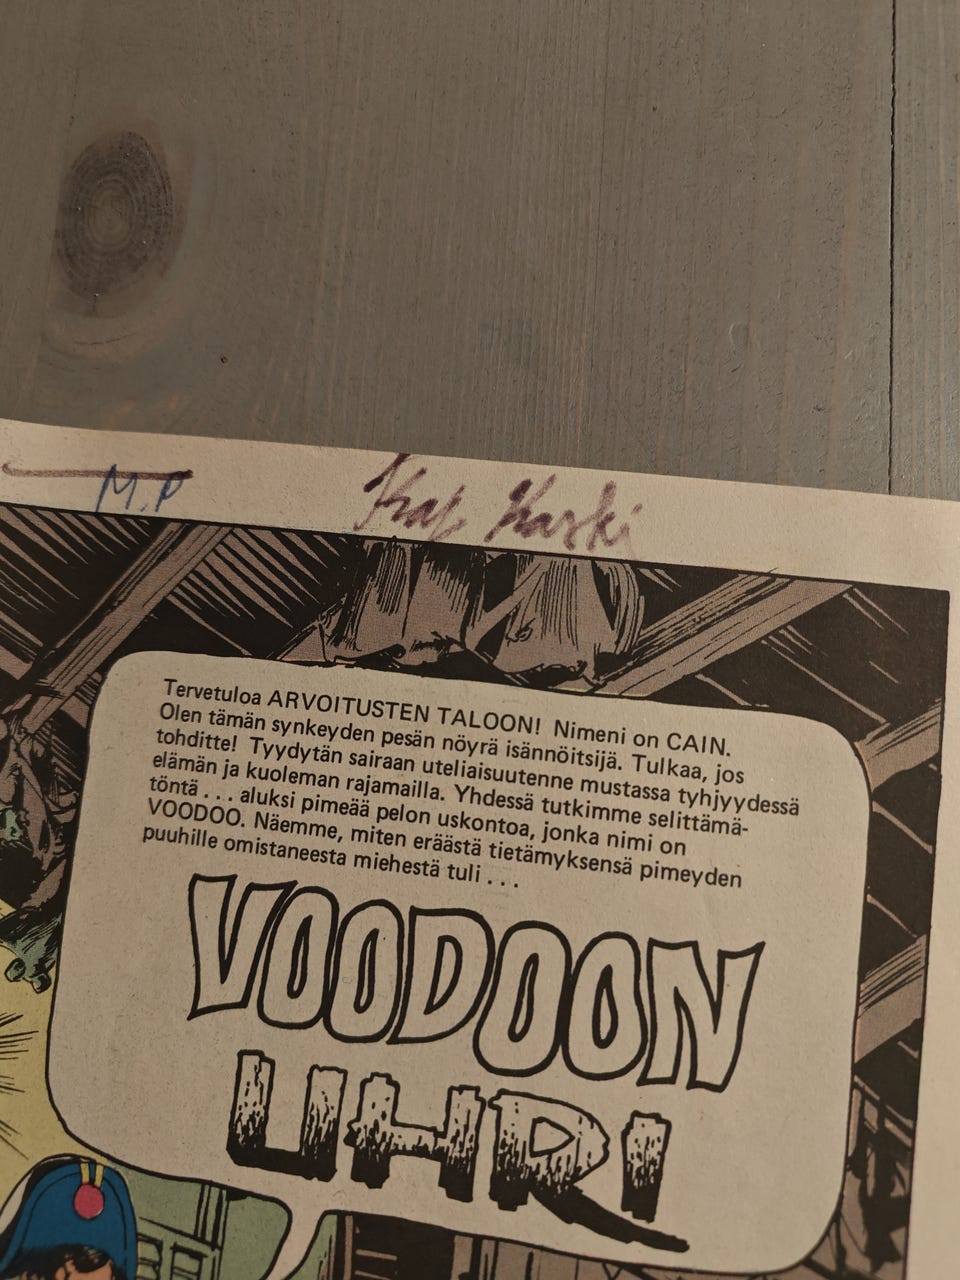 M.P
Karski
Tervetuloa ARVOITUSTEN TALOON! Nimeni on CAIN.
Olen tämän synkeyden pesän nöyrä isännöitsijä. Tulkaa, jos
tohditte! Tyydytän sairaan uteliaisuutenne mustassa tyhjyydessä
elämän ja kuoleman rajamailla. Yhdessä tutkimme selittämä-
töntä . . . aluksi pimeää pelon uskontoa, jonka nimi on
VOODOO. Näemme, miten eräästä tietämyksensä pimeyden
puuhille omistaneesta miehestä tuli . . .
VOODOON
UHRI